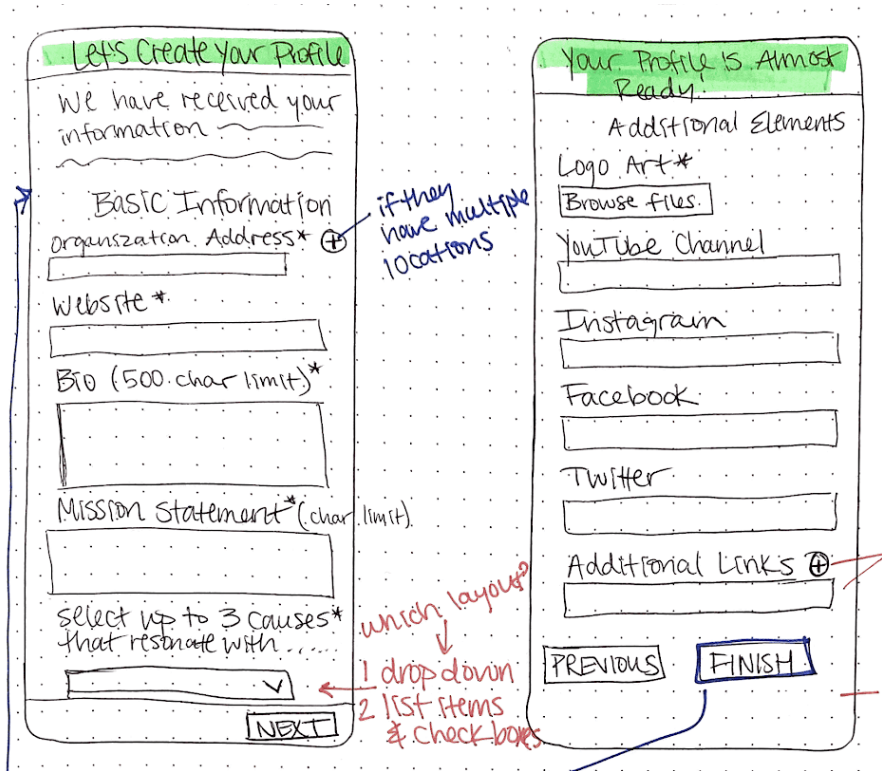 Let's Create Your Profile
We have received your
information
Basic Information
organiszation Address* +
if they
have multiple
locations
Website*
Bio (500 char limit)*
Mission Statement* (char limit)
select up to 3 causes*
that resonate with......
which layout?
1 drop down
2 list items
& check boxes
NEXT
Your Profile is Almost
Ready!
Additional Elements
Logo Art*
Browse files
YouTube Channel
Instagram
Facebook
Twitter
Additional Links +
PREVIOUS
FINISH